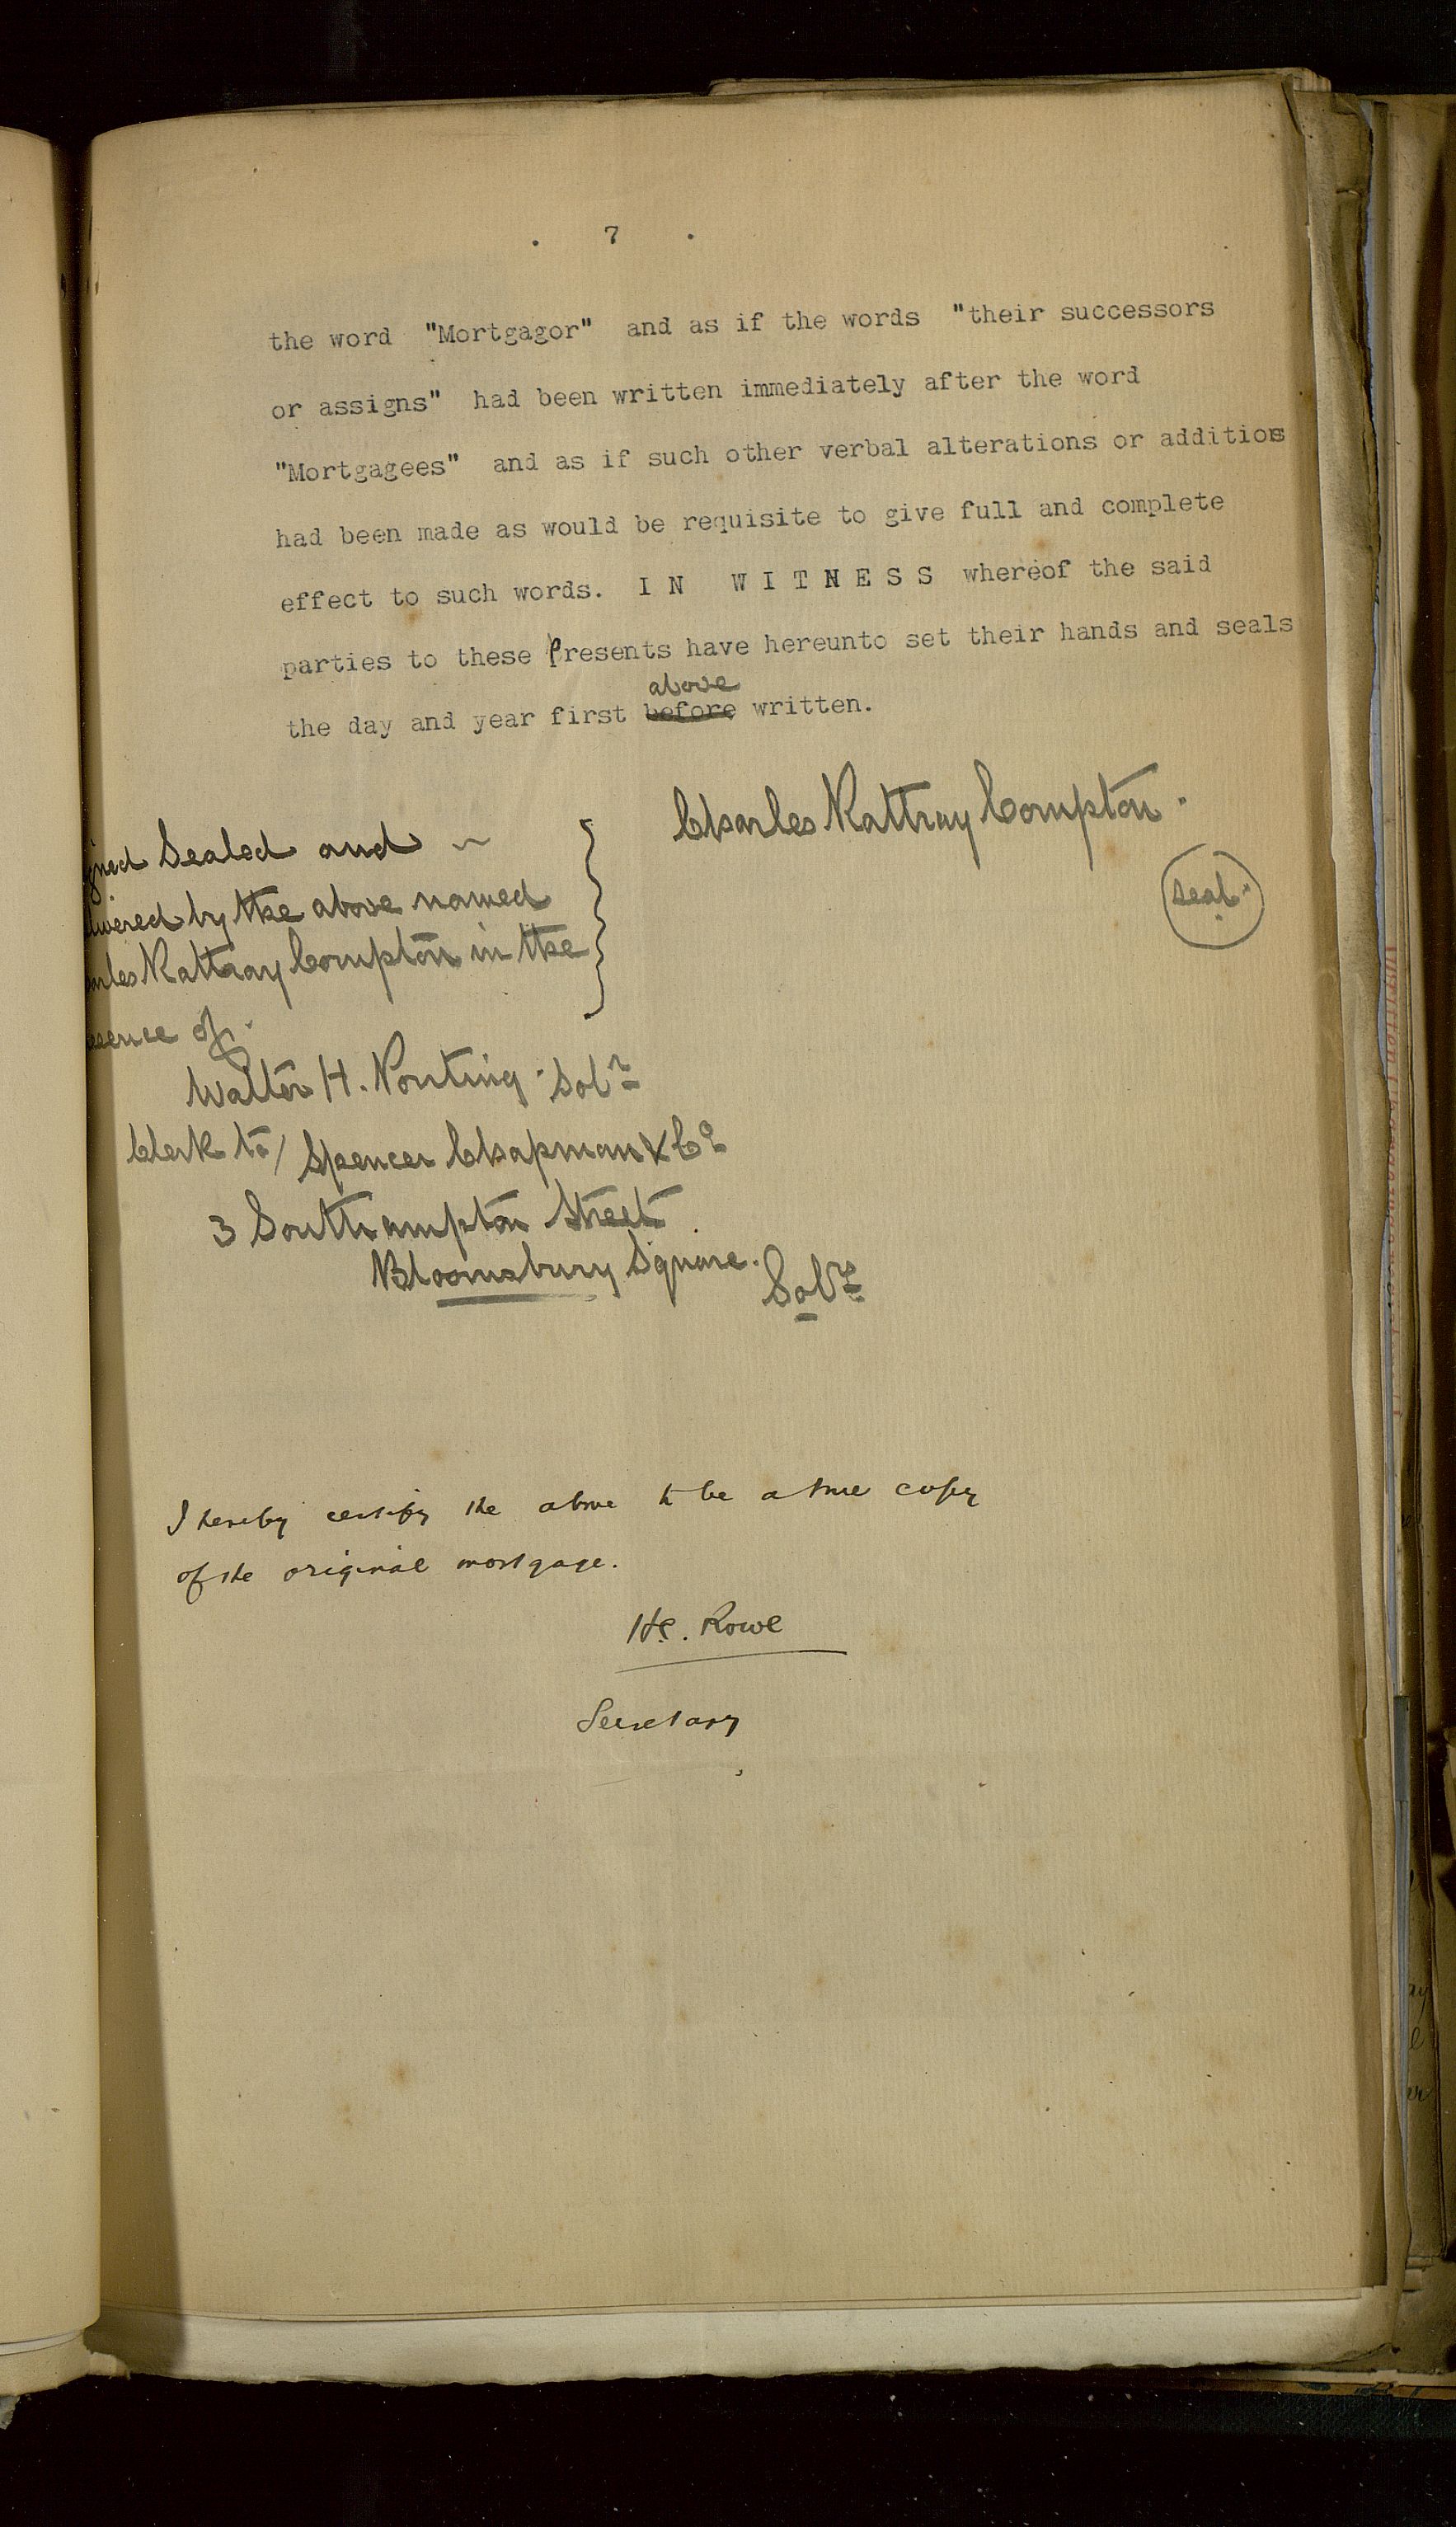 . 7 .
the word "Mortgagor" and as if the words "their successors
or assigns" had been written immediately after the word
"Mortgagees" and as if such other verbal alterations or additions
had been made as would be requisite to give full and complete
effect to such words. I N W I T N E S S whereof the said
parties to these Presents have hereunto set their hands and seals
above
the day and year first before written.
Charles Rattray Compton.
Seal.
igned Sealed and ~
livered by the above named
arles Rattray Compton in the
esence of.
Walter H. Ponting. Solr
Clerk to / Spencer Chapman & Co
3 Southampton Street
Bloomsbury Square.
Solrs
I hereby certify the above to be a true copy
of the original mortgage.
Rowe
Secretary